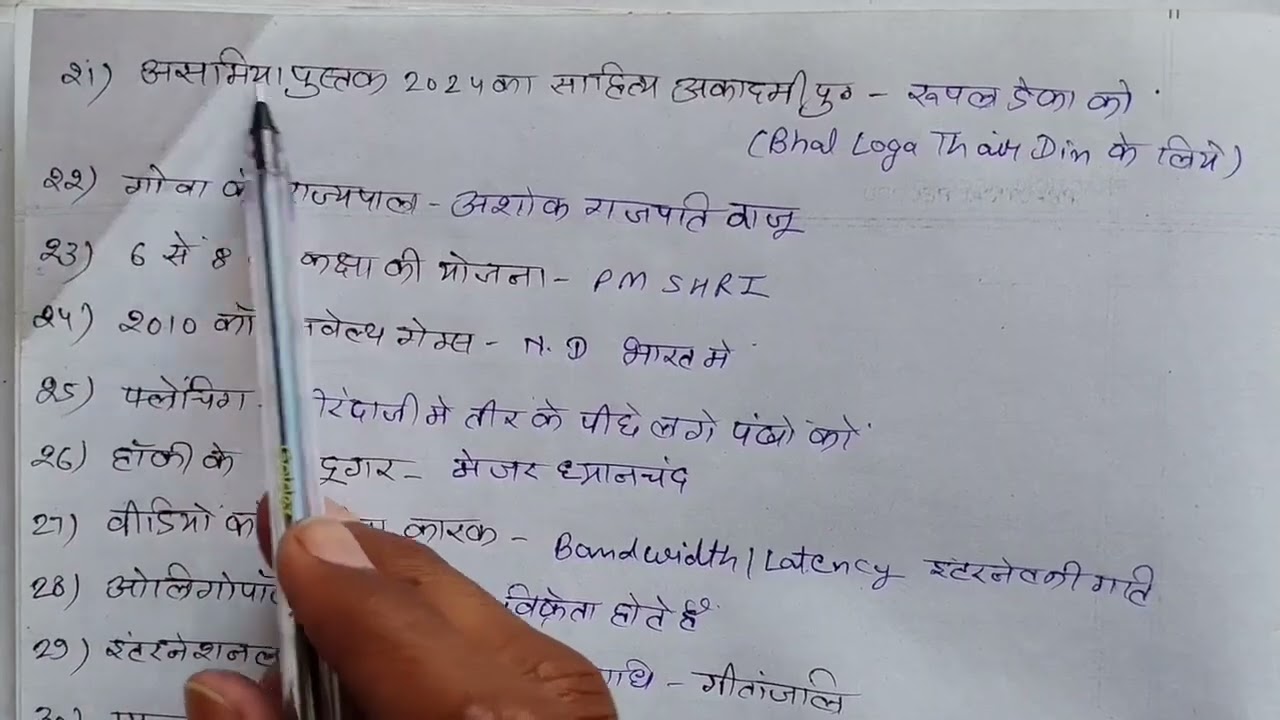 21) असामिया पुस्तक 2024 का साहित्य अकादमी पु० - रूपल डेका को
(Bhal Loga Din के लिये)
22) गोवा के राज्यपाल - अशोक गजपति वाजू
23) 6 से 8 कक्षा की योजना - PM SHRI
24) 2010 कॉ वेल्थ गेम्स - N.D भारत मे
25) फ्लेंचिग रंदाजी मे तीर के पीछे लगे पंखो को
26) हॉकी के दूगर - मेजर ध्यानचंद
27) वीडियों कारक - Bandwidth/Latency इंटरनेट की गति
28) विक्रेता होते है
29) इंटरनेशनल - गीतांजलि